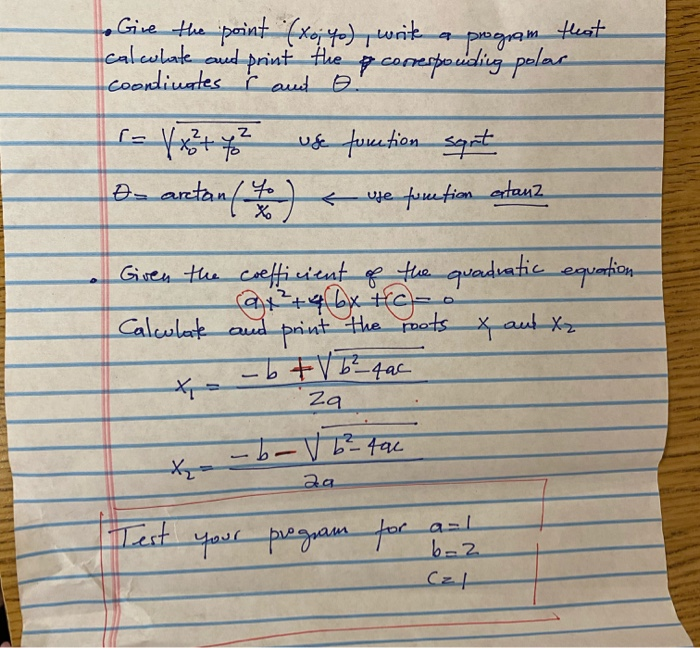 • Give the point (x₀, y₀), write a program that
calculate and print the corresponding polar
coordinates r and θ.
r = √x₀² + y₀² use function sqrt
θ = arctan(y₀/x₀) ← use function atan2
• Given the coefficient of the quadratic equation
ax² + bx + c = 0
Calculate and print the roots x₁ and x₂
x₁ = -b + √b²-4ac / 2a
x₂ = -b - √b²-4ac / 2a
Test your program for a=1
b=2
c=1